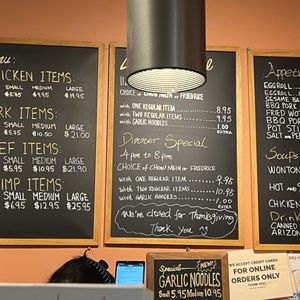 nu:
CKEN ITEMS:
SMALL MEDIUM LARGE
RK ITEMS:
SMALL MEDIUM LARGE
$21.00
EF ITEMS:
SMALL MEDIUM LARGE
$21.90
IMP ITEMS:
SMALL MEDIUM LARGE
$6.95 $12.95 $25.95
CHOICE OF CHOW MEIN OR FRIEDRICE
WITH ONE REGULAR ITEM 8.95
WITH TWO REGULAR ITEMS 9.95
WITH GARLIC NOODLES 1.00
EXTRA
Dinner Special
4 pm to 8 pm
CHOICE OF CHOW MEIN OR FRIEDRICE
WITH ONE REGULAR ITEM 9.95
WITH TWO REGULAR ITEMS 10.95
WITH GARLIC NOODLES 1.00
EXTRA
We're closed for Thanksgiving
Thank You
Appeti
EGGROLL
EGGROLL
SESAME BA
BBQ PORK
FRIED WO
BBQ PO
POT ST
SALT +
PEP
Soups
WONTON
HOT AND
CHICKEN
DRINK
CANNED
ARIZON
Special NEW!
GARLIC NOODLES
Small 5.95 Medium 10.95
WE ACCEPT CREDIT CARDS
FOR ONLINE
ORDERS ONLY